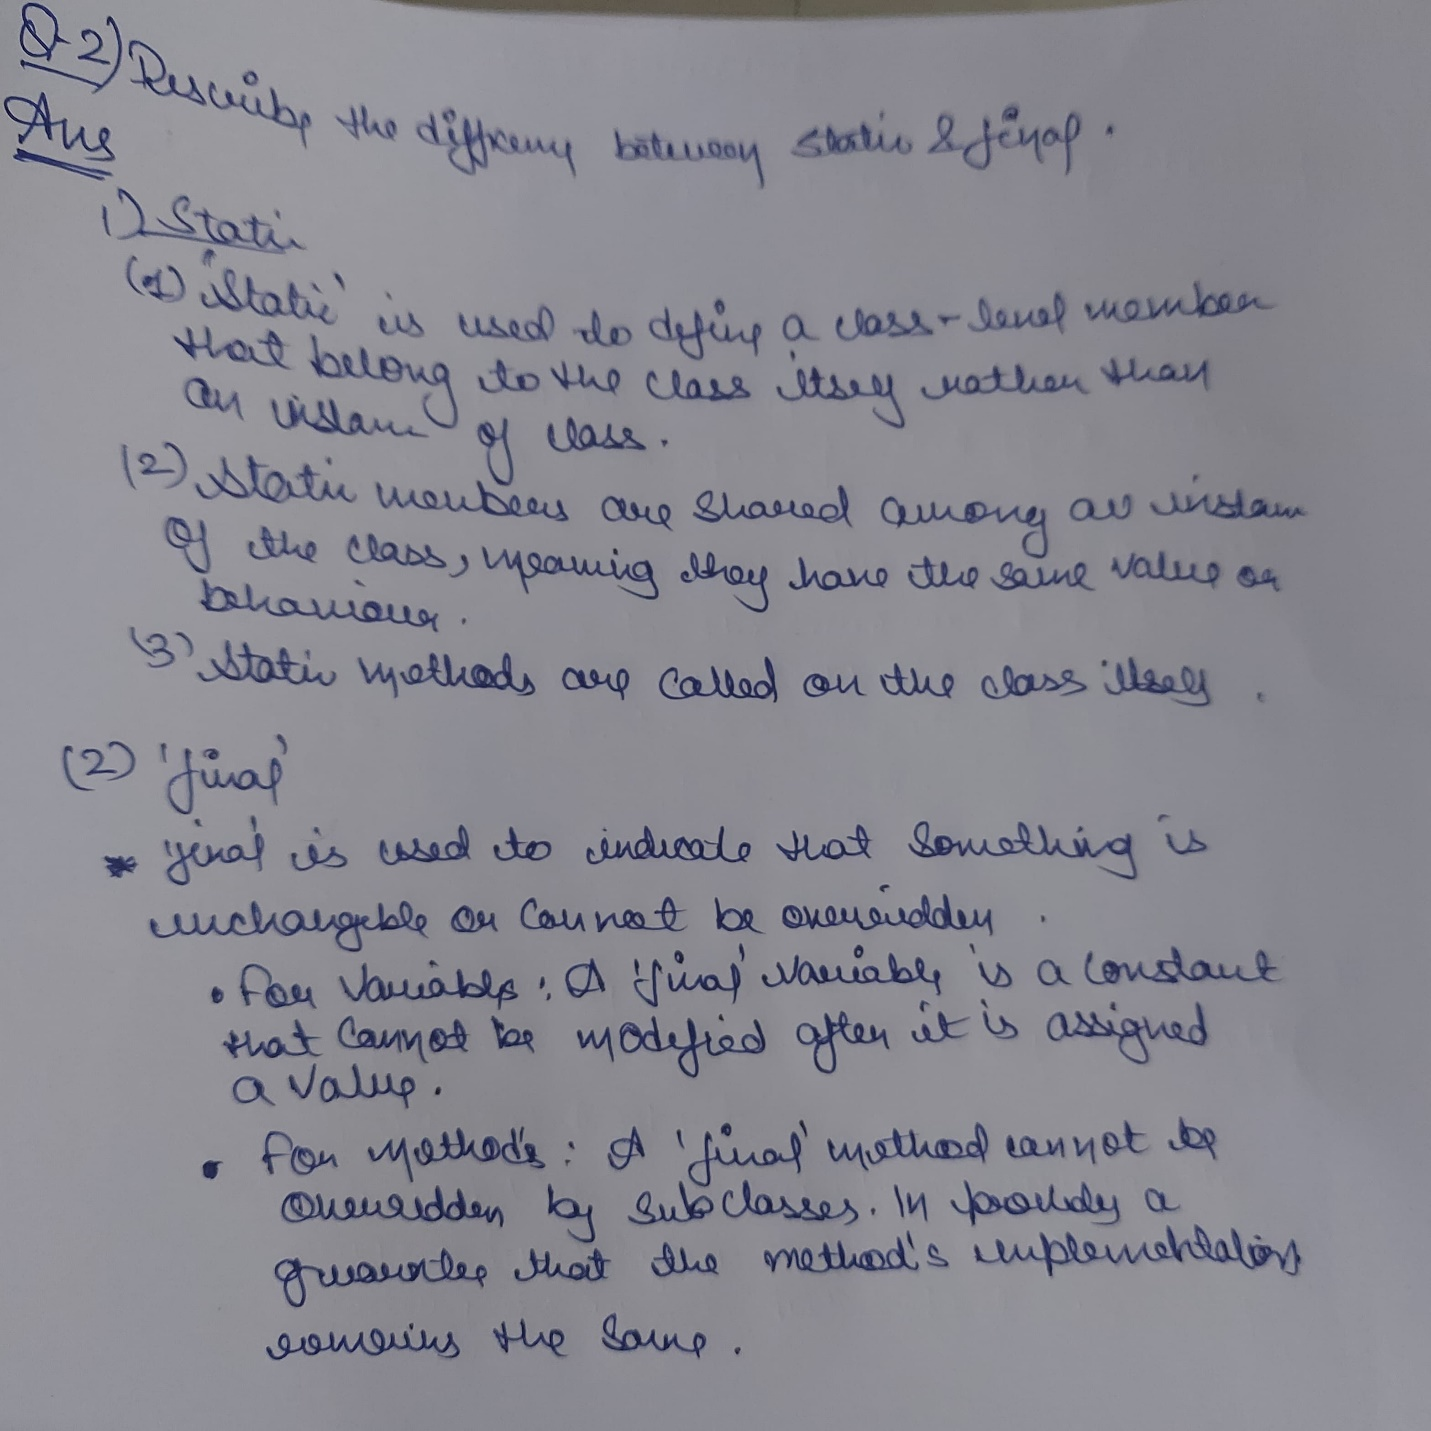 Q-2) Describe the difference between static & final.
Ans
1) Static
(1) 'Static' is used to define a class-level member
that belong to the class itself rather than
an instance of class.
(2) Static members are shared among all instance
of the class, meaning they have the same value or
behaviour.
(3) Static methods are called on the class itself.
(2) 'final'
* 'final' is used to indicate that something is
unchangeble or cannot be overridden.
• For Variables: A 'final' variable is a constant
that cannot be modified after it is assigned
a value.
• For methods: A 'final' method cannot be
overridden by subclasses. It provides a
guarantee that the method's implementations
remains the same.